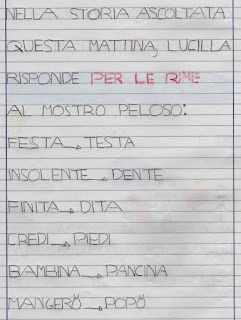 NELLA STORIA ASCOLTATA
QUESTA MATTINA, LUCILLA
RISPONDE PER LE RIME
AL MOSTRO PELOSO:
FESTA → TESTA
INSOLENTE → DENTE
FINITA → DITA
CREDI → PIEDI
BAMBINA → PANCINA
MANGERÖ → POPÖ